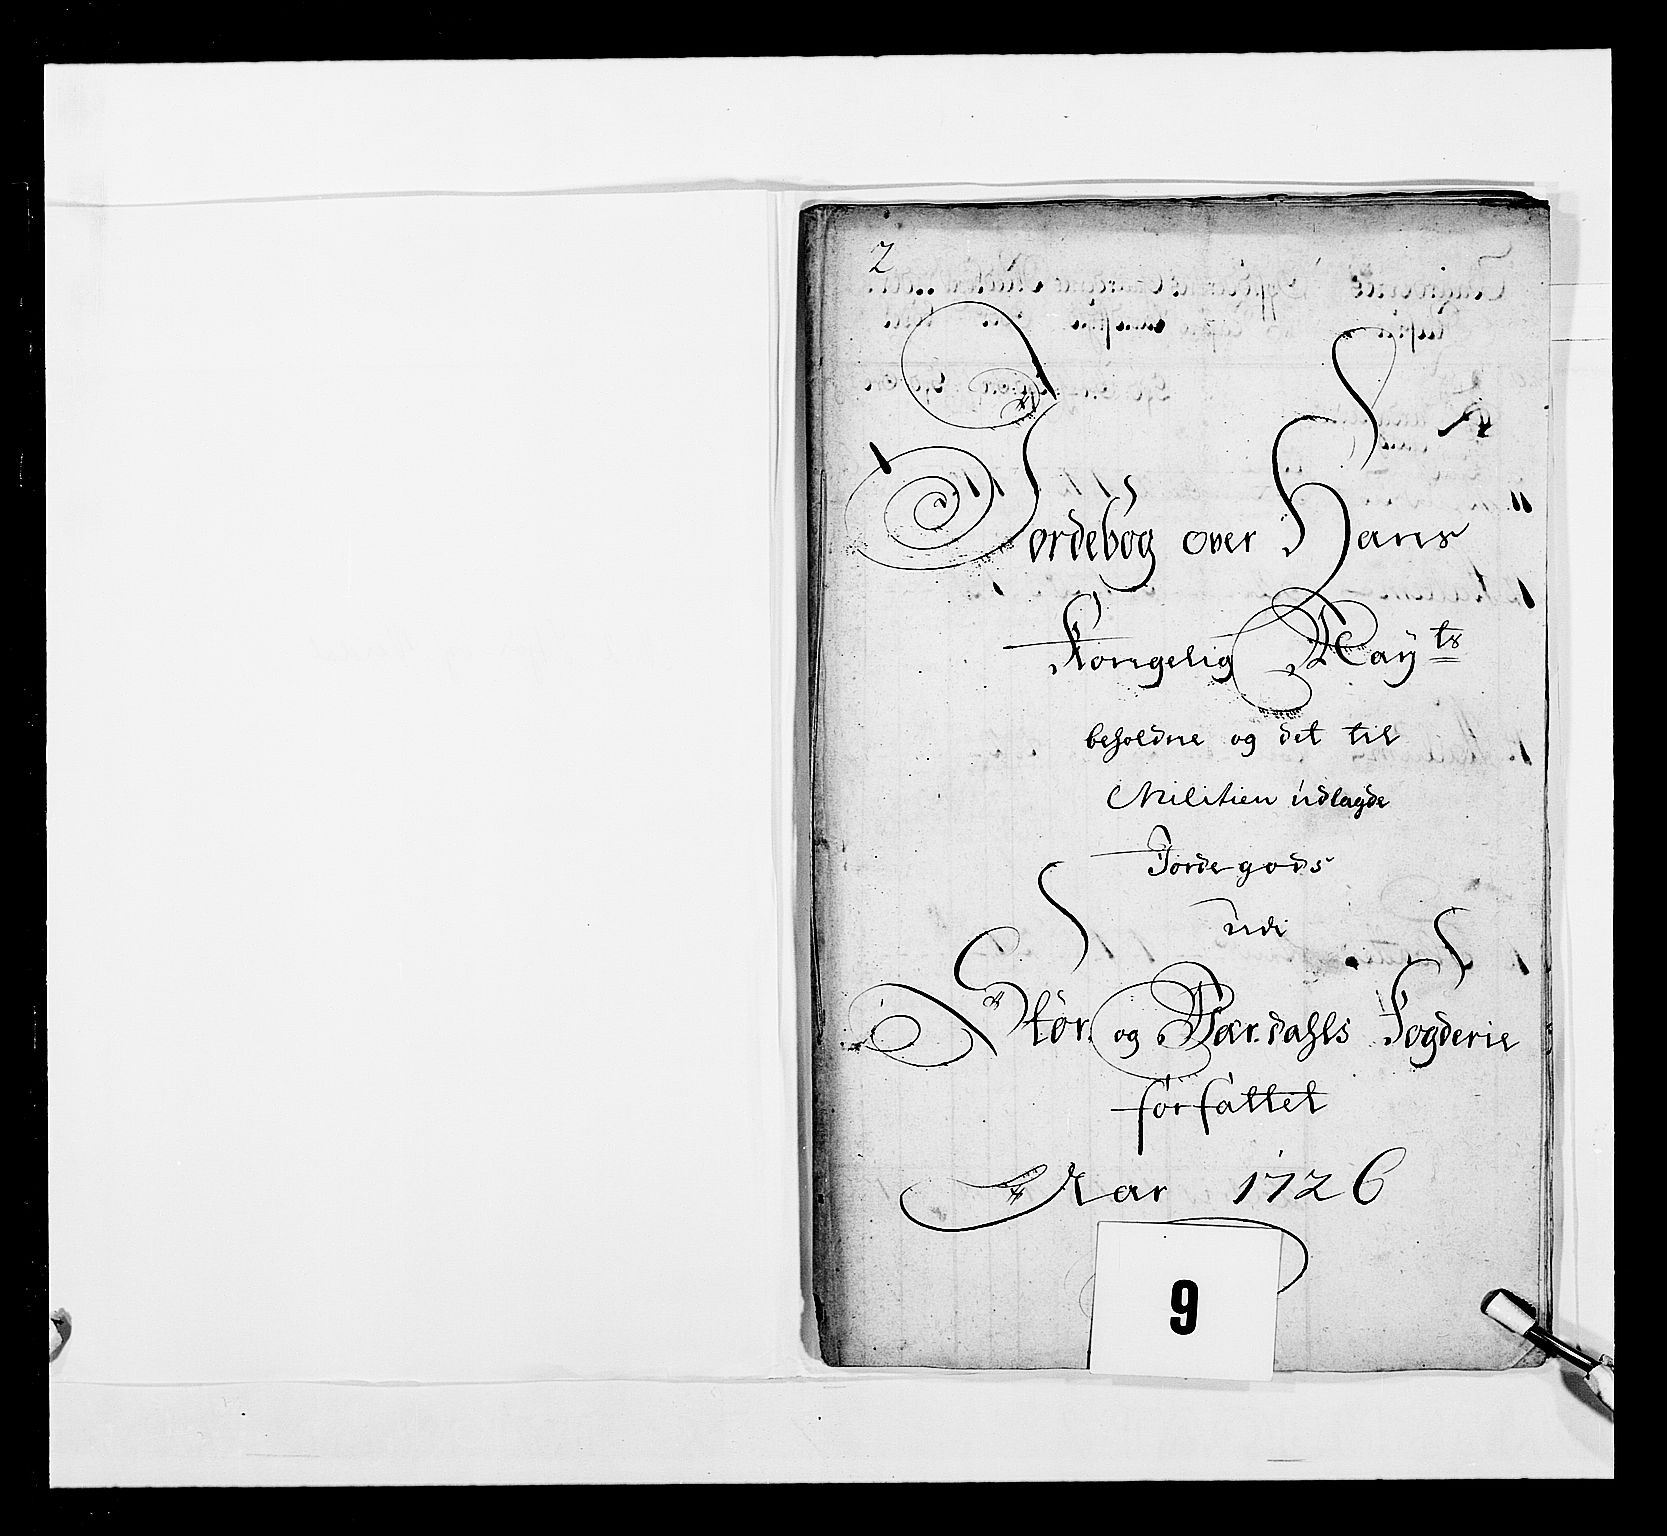 2
Jordebog over Hans
Kongelig May<sup>ts</sup>
beholdne og det til
Militien udlagde
Jordegods
udi
Stør og Værdahls Fogderie
forfattet
Aar 1726
9